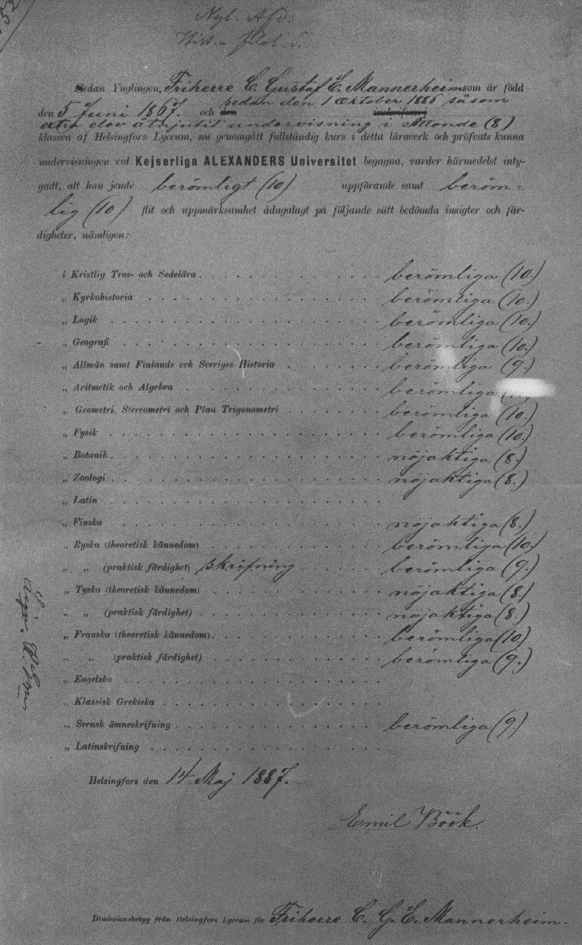 Nyl. Afd.
Sedan Ynglingen, Friherre C. Gustaf E. Mannerheim som är född
den 5 Juni 1867. och sedan den 1 Oktober 1886 såsom
extra elev åtnjutit undervisning i Åttonde (8)
klassen af Helsingfors Lyceum, nu genomgått fullständig kurs i detta läroverk och pröfvats kunna
undervisningen vid Kejserliga ALEXANDERS Universitet begagna, varder härmedelst inty-
gadt, att han jemte berömligt (10) uppförande samt beröm=
lig (10) flit och uppmärksamhet ådagalagt på följande sätt bedömda insigter och fär-
digheter, nämligen:
i Kristlig Tros- och Sedelära . . . berömliga (10.)
„ Kyrkohistoria . . . berömliga (10.)
„ Logik . . . berömliga (10.)
„ Geografi . . . berömliga (10.)
„ Allmän samt Finlands och Sveriges Historia . . . berömliga (9.)
„ Aritmetik och Algebra . . . berömliga
„ Geometri, Stereometri och Plan Trigonometri . . . berömliga (10.)
„ Fysik . . . berömliga (10.)
„ Botanik . . . nöjaktiga (8.)
„ Zoologi . . . nöjaktiga (8.)
„ Latin . . .
„ Finska . . . nöjaktiga (8.)
„ Ryska (theoretisk kännedom) . . . berömliga (10.)
„ „ (praktisk färdighet) skrifning . . . berömliga (9.)
„ Tyska (theoretisk kännedom) . . . nöjaktiga (8.)
„ „ (praktisk färdighet) . . . nöjaktiga (8.)
„ Franska (theoretisk kännedom) . . . berömliga (10)
„ „ (praktisk färdighet) . . . berömliga (9.)
„ Engelska . . .
„ Klassisk Grekiska . . .
„ Svensk ämneskrifning . . . berömliga (9)
„ Latinskrifning . . .
Helsingfors den 14 Maj 1887.
Emil Böök.
Dimissionsbetyg från Helsingfors Lyceum för Friherre C. G. E. Mannerheim.